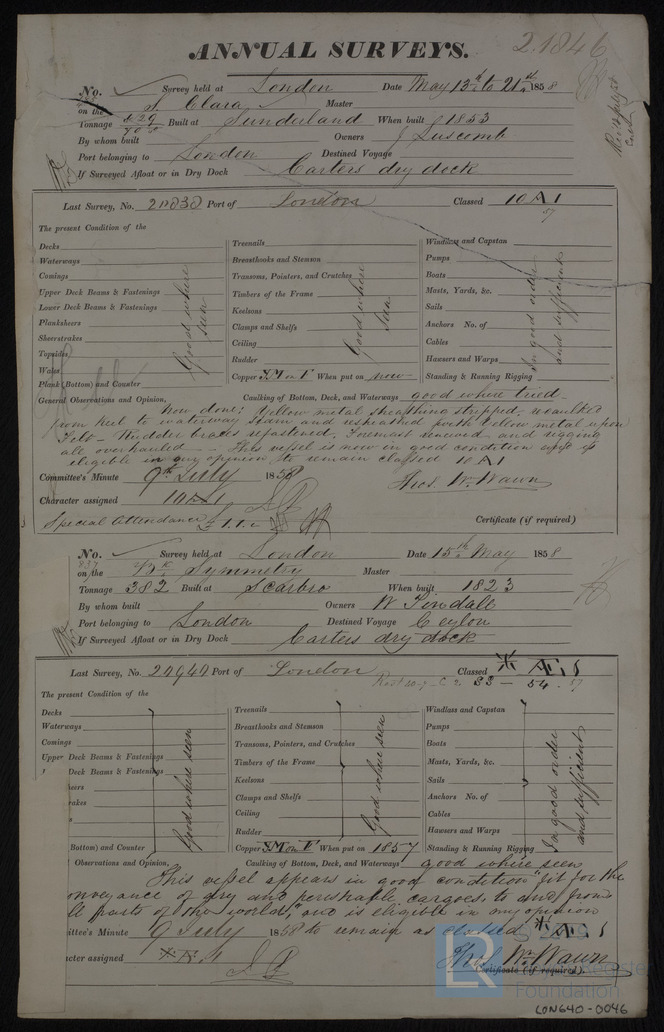 ANNUAL SURVEYS.
2.1846
No. Survey held at London Date May 13th to 21st 1858
on the S. Clara Master
Tonnage 429 Built at Sunderland When built 1853
By whom built Owners J Luscomb
Port belonging to London Destined Voyage
If Surveyed Afloat or in Dry Dock Carters dry dock
Last Survey, No. 20838 Port of London Classed 10 A 1
57
The present Condition of the
Decks
Waterways
Comings
Upper Deck Beams & Fastenings
Lower Deck Beams & Fastenings
Planksheers
Sheerstrakes
Topsides
Wales
Plank (Bottom) and Counter
Good where seen
Treenails
Breasthooks and Stemson
Transoms, Pointers, and Crutches
Timbers of the Frame
Keelsons
Clamps and Shelfs
Ceiling
Rudder
Copper YM on F When put on now
Good where seen
Windlass and Capstan
Pumps
Boats
Masts, Yards, &c.
Sails
Anchors No. of
Cables
Hawsers and Warps
Standing & Running Rigging
In good order and sufficient
General Observations and Opinion, Caulking of Bottom, Deck, and Waterways good where tried
Now done: Yellow metal sheathing stripped, recaulked
from keel to waterway seam and resheathed with Yellow metal upon
Felt - Rudder braces refastened, Foremast renewed and rigging
all overhauled - This vessel is now in good condition and is
eligible in my opinion to remain classed 10 A 1
Committee's Minute 9th July 1858 Thos. Wm. Wawn
Character assigned 10 A 1
Special Attendance £1.1.0 Certificate (if required)
No. Survey held at London Date 15th May 1858
837
on the Bk Symmetry Master
Tonnage 382 Built at Scarbro When built 1823
By whom built Owners W Tindale
Port belonging to London Destined Voyage Ceylon
If Surveyed Afloat or in Dry Dock Carters dry dock
Last Survey, No. Port of London Classed Æ 1
33 - 54 - 57
The present Condition of the
Decks
Waterways
Comings
Upper Deck Beams & Fastenings
Deck Beams & Fastenings
heers
rakes
Bottom) and Counter
Good where seen
Treenails
Breasthooks and Stemson
Transoms, Pointers, and Crutches
Timbers of the Frame
Keelsons
Clamps and Shelfs
Ceiling
Rudder
Copper YM on F When put on 1857
Good where seen
Windlass and Capstan
Pumps
Boats
Masts, Yards, &c.
Sails
Anchors No. of
Cables
Hawsers and Warps
Standing & Running Rigging
In good order and sufficient
Observations and Opinion, Caulking of Bottom, Deck, and Waterways good where seen
This vessel appears in good condition "fit for the
onveyance of dry and perishable cargoes to and from
ll parts of the world", and is eligible in my opinion
ittee's Minute 9 July 1858 to remain as classed Æ 1
cter assigned Æ 1 Thos. Wm. Wawn
Certificate (if required).
LR
Foundation
LON640-0046